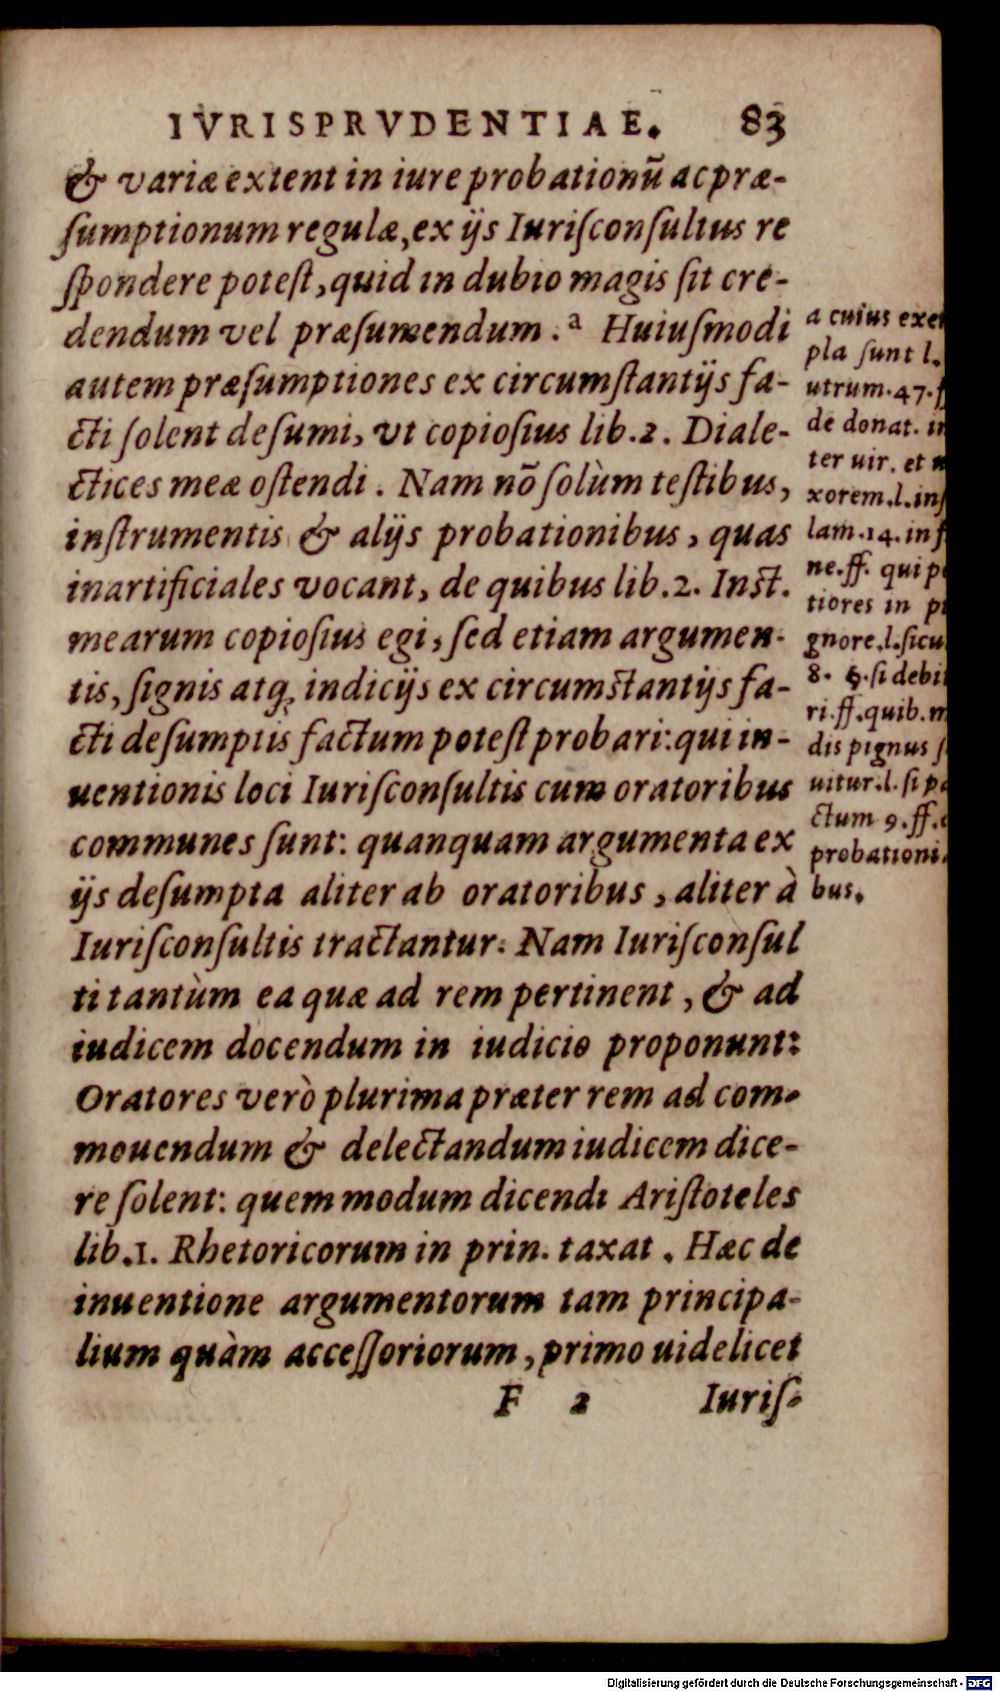 IVRISPRVDENTIAE. 83
& variæ extent in iure probationū ac præ-
ſumptionum regulæ, ex ijs Iuriſconſultus re
ſpondere poteſt, quid in dubio magis ſit cre-
dendum vel præſumendum .ª Huiuſmodi
autem præſumptiones ex circumſtantijs fa-
cti ſolent deſumi, vt copioſius lib.2. Diale-
ctices meæ oſtendi . Nam nō ſolùm teſtibus,
inſtrumentis & alijs probationibus, quas
inartificiales vocant, de quibus lib.2. Inſt.
mearum copioſius egi, ſed etiam argumen-
tis, ſignis atq; indicijs ex circumſtantijs fa-
cti deſumptis factum poteſt probari: qui in-
uentionis loci Iuriſconſultis cum oratoribus
communes ſunt: quanquam argumenta ex
ijs deſumpta aliter ab oratoribus, aliter à
Iuriſconſultis tractantur. Nam Iuriſconſul
ti tantùm ea quæ ad rem pertinent, & ad
iudicem docendum in iudicio proponunt:
Oratores verò plurima præter rem ad com-
mouendum & delectandum iudicem dice-
re ſolent: quem modum dicendi Ariſtoteles
lib.1. Rhetoricorum in prin. taxat . Hæc de
inuentione argumentorum tam principa-
lium quàm acceſſoriorum, primo uidelicet
F 2 Iuriſ-
a cuius
pla ſunt l.
utrum.47.
de donat.
ter uir. et
xorem.l.
lam.14. in
ne.ff. qui
tiores in
gnore.l.
8. §.ſi
ri.ff.quib.
dis pignus
uitur.l. ſi
ctum 9.ff.
probationi-
bus.
Digitalisierung gefördert durch die Deutsche Forschungsgemeinschaft - DFG